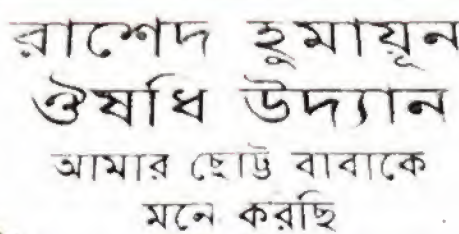 রাশেদ হুমায়ূন
ঔষধি উদ্যান
আমার ছোট্ট বাবাকে
মনে করছি